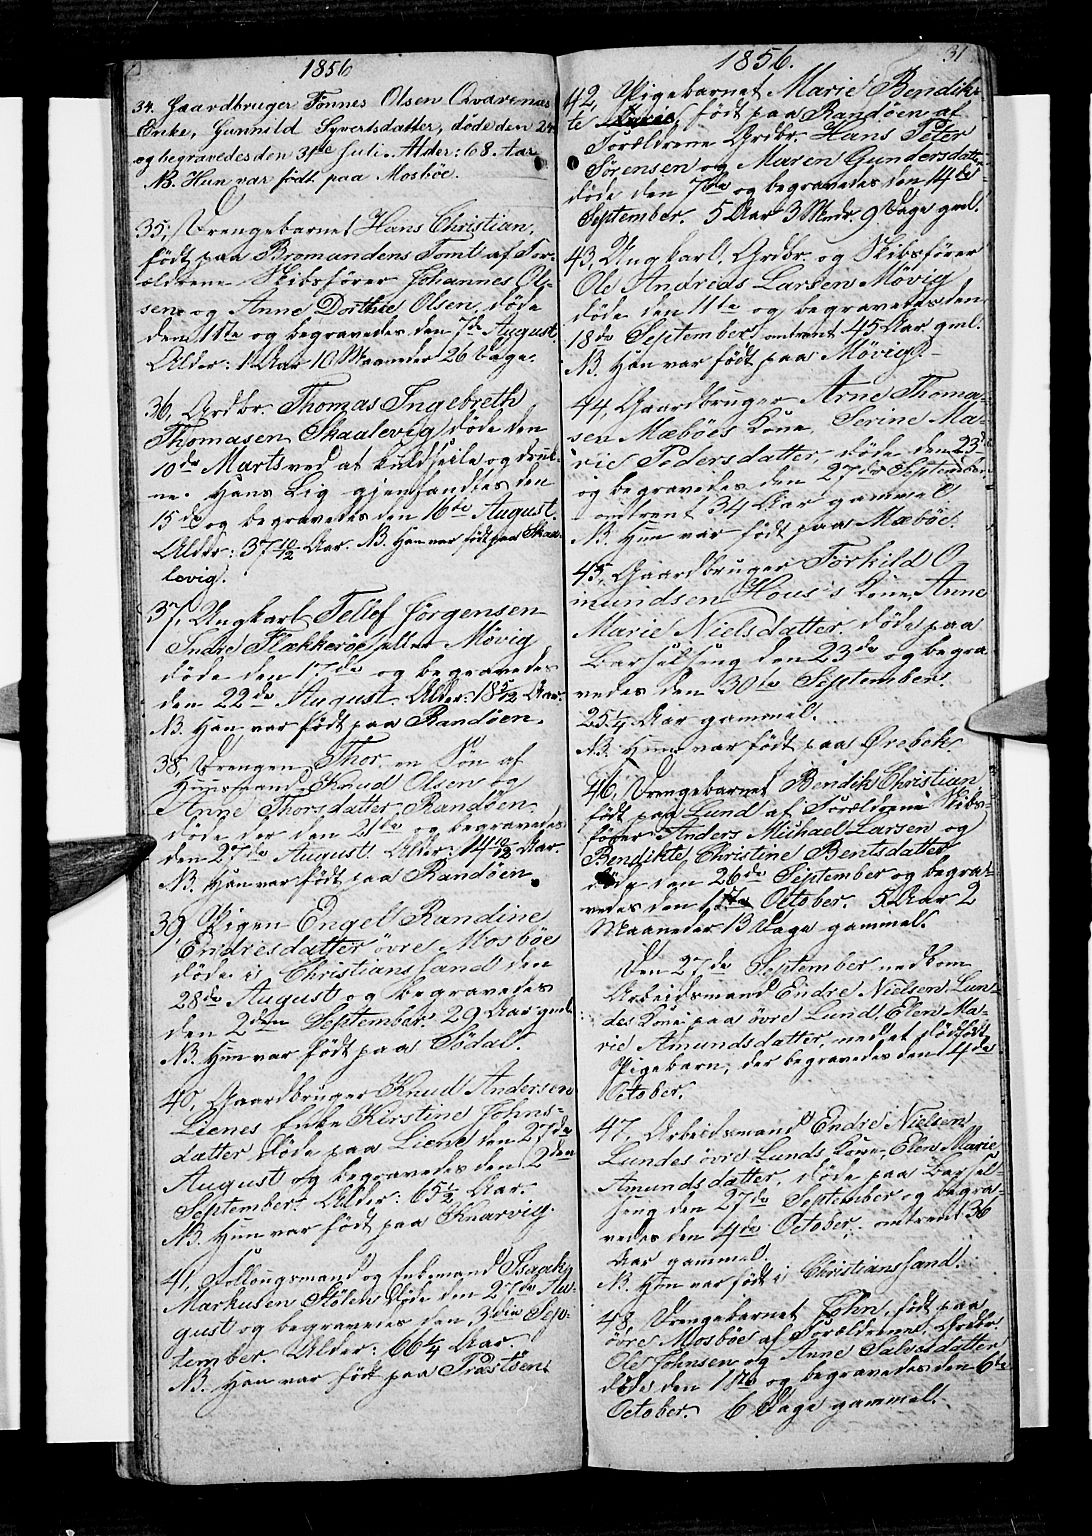 1856
34. Gaardbruger Tönnes Olsen Qvarenæs
Enke, Gunnild Syvertsdatter, döde den 24
og begravedes den 31te Juli. Alder: 68 Aar
NB. Hun var födt paa Mosböe.
35, Drengebarnet Hans Christian,
födt paa Bromandens Tomt af For-
ældrene Skibsförer Johannes Ol-
sen og Anne Dorthie Olsen, döde
den 11te og begravedes den de August
Alder: 1 Aar 10 Maaneder 26 Dage.
36, Grdbr Thomas Ingebreth
Thomasen Skaalevig döde den
10de Marts ved at kuldseile og druk-
ne. Hans Lig gjenfandtes den
15de og begravedes den 16te August.
Alder: 37 10/12 Aar. NB. Han var födt paa Skaa-
levig.
37, Ungkarl Tellef Jörgensen
Indre Flækkeröe eller Mövig
döde den 17.de og begravedes
den 22de August. Alder: 18 5/12 Aar.
NB. Han var födt paa Randöen.
38, Drengen Thor, en Sön af
Huusmand Knud Olsen og
Anne Thorsdatter Randöen
döde der den 21de og begravedes
den 27de August. Alder: 14 10/12 Aar.
NB. Han var födt paa Randöen.
39, Pigen Engel Randine
Endresdatter övre Mosböe
döde i Christianssand den
28de August og begravedes
den 2den September. 29 Aar gml.
NB. Hun var födt paa Södal.
40, Gaardbruger Knud Andersen
Lienes Enke Kirstine Johns-
datter, döde paa Liene den 27de
August og begravedes den 2den
September. Alder: 65 1/2 Aar.
NB. Hun var födt paa Knarvig.
41, Follougsmand og Enkemand Isaak
Markusen Stölen döde den 27de Au-
gust og begravedes den 3die Sep-
tember. Alder: 66 1/4 Aar.
NB. Han var födt paa
1856. 31
42, Pigebarnet Marie Bendik-
te födt paa Randöen af
Forældrene Grdbr. Hans Peter
Sörensen og Maren Gundersdatter
döde den 7de og begravedes den 14de
September. 5 Aar 3 Mndr. 9 Dage gml.
43, Ungkarl, Grdbr. og Skibsförer
Ole Andreas Larsen Mövig
döde den 11te og begravedes den
18de September, omtrent 45 Aar gml.
NB. Han var födt paa Mövig.
44, Gaardbruger Arne Thoma-
sen Mæböes Kone, Serine Ma-
rie Pedersdatter, döde den 23de
og begravedes den 27de September,
omtrent 34 Aar gammel
NB. Hun var födt paa Mæböe.
45, Gaardbruger Torkild O-
mundsen Höus's Kone, Anne
Marie Nielsdatter, döde paa
Barselseng den 23de og begra-
vedes den 30te September.
25 1/4 Aar gammel.
NB. Hun var födt paa Örebek
46, Drengebarnet Bendik Christian
födt paa Lund af Forældrene Skibs-
förer Anders Michael Larsen og
Bendikte Christine Bentsdatter
döde den 26de September og begra-
vedes den 1ste October. 5 Aar 2
Maaneder 13 Dage gammel.
Den 27de September nedkom
Arbeidsmand Endre Nielsen Lun-
des Kone paa övre Lund, Elen Ma-
rie Amundsdatter, med et dödfödt
Pigebarn, der begravedes den 4de
October.
47, Arbeidsmand Endre Nielsen
Lundes övre Lunds Kone, Elen Marie
Amundsdatter, döde paa Barsel-
seng den 27de September og begra-
vedes den 4de October, omtrent 36
Aar gammel.
NB. Hun var födt i Christianssand.
48, Drengebarnet John, födt paa
övre Mosböe af Forældrene Grdbr.
Ole Johnsen og Anne Salvesdatter
döde den 1ste og begravedes den 6te
October. 6 Dage gammel.